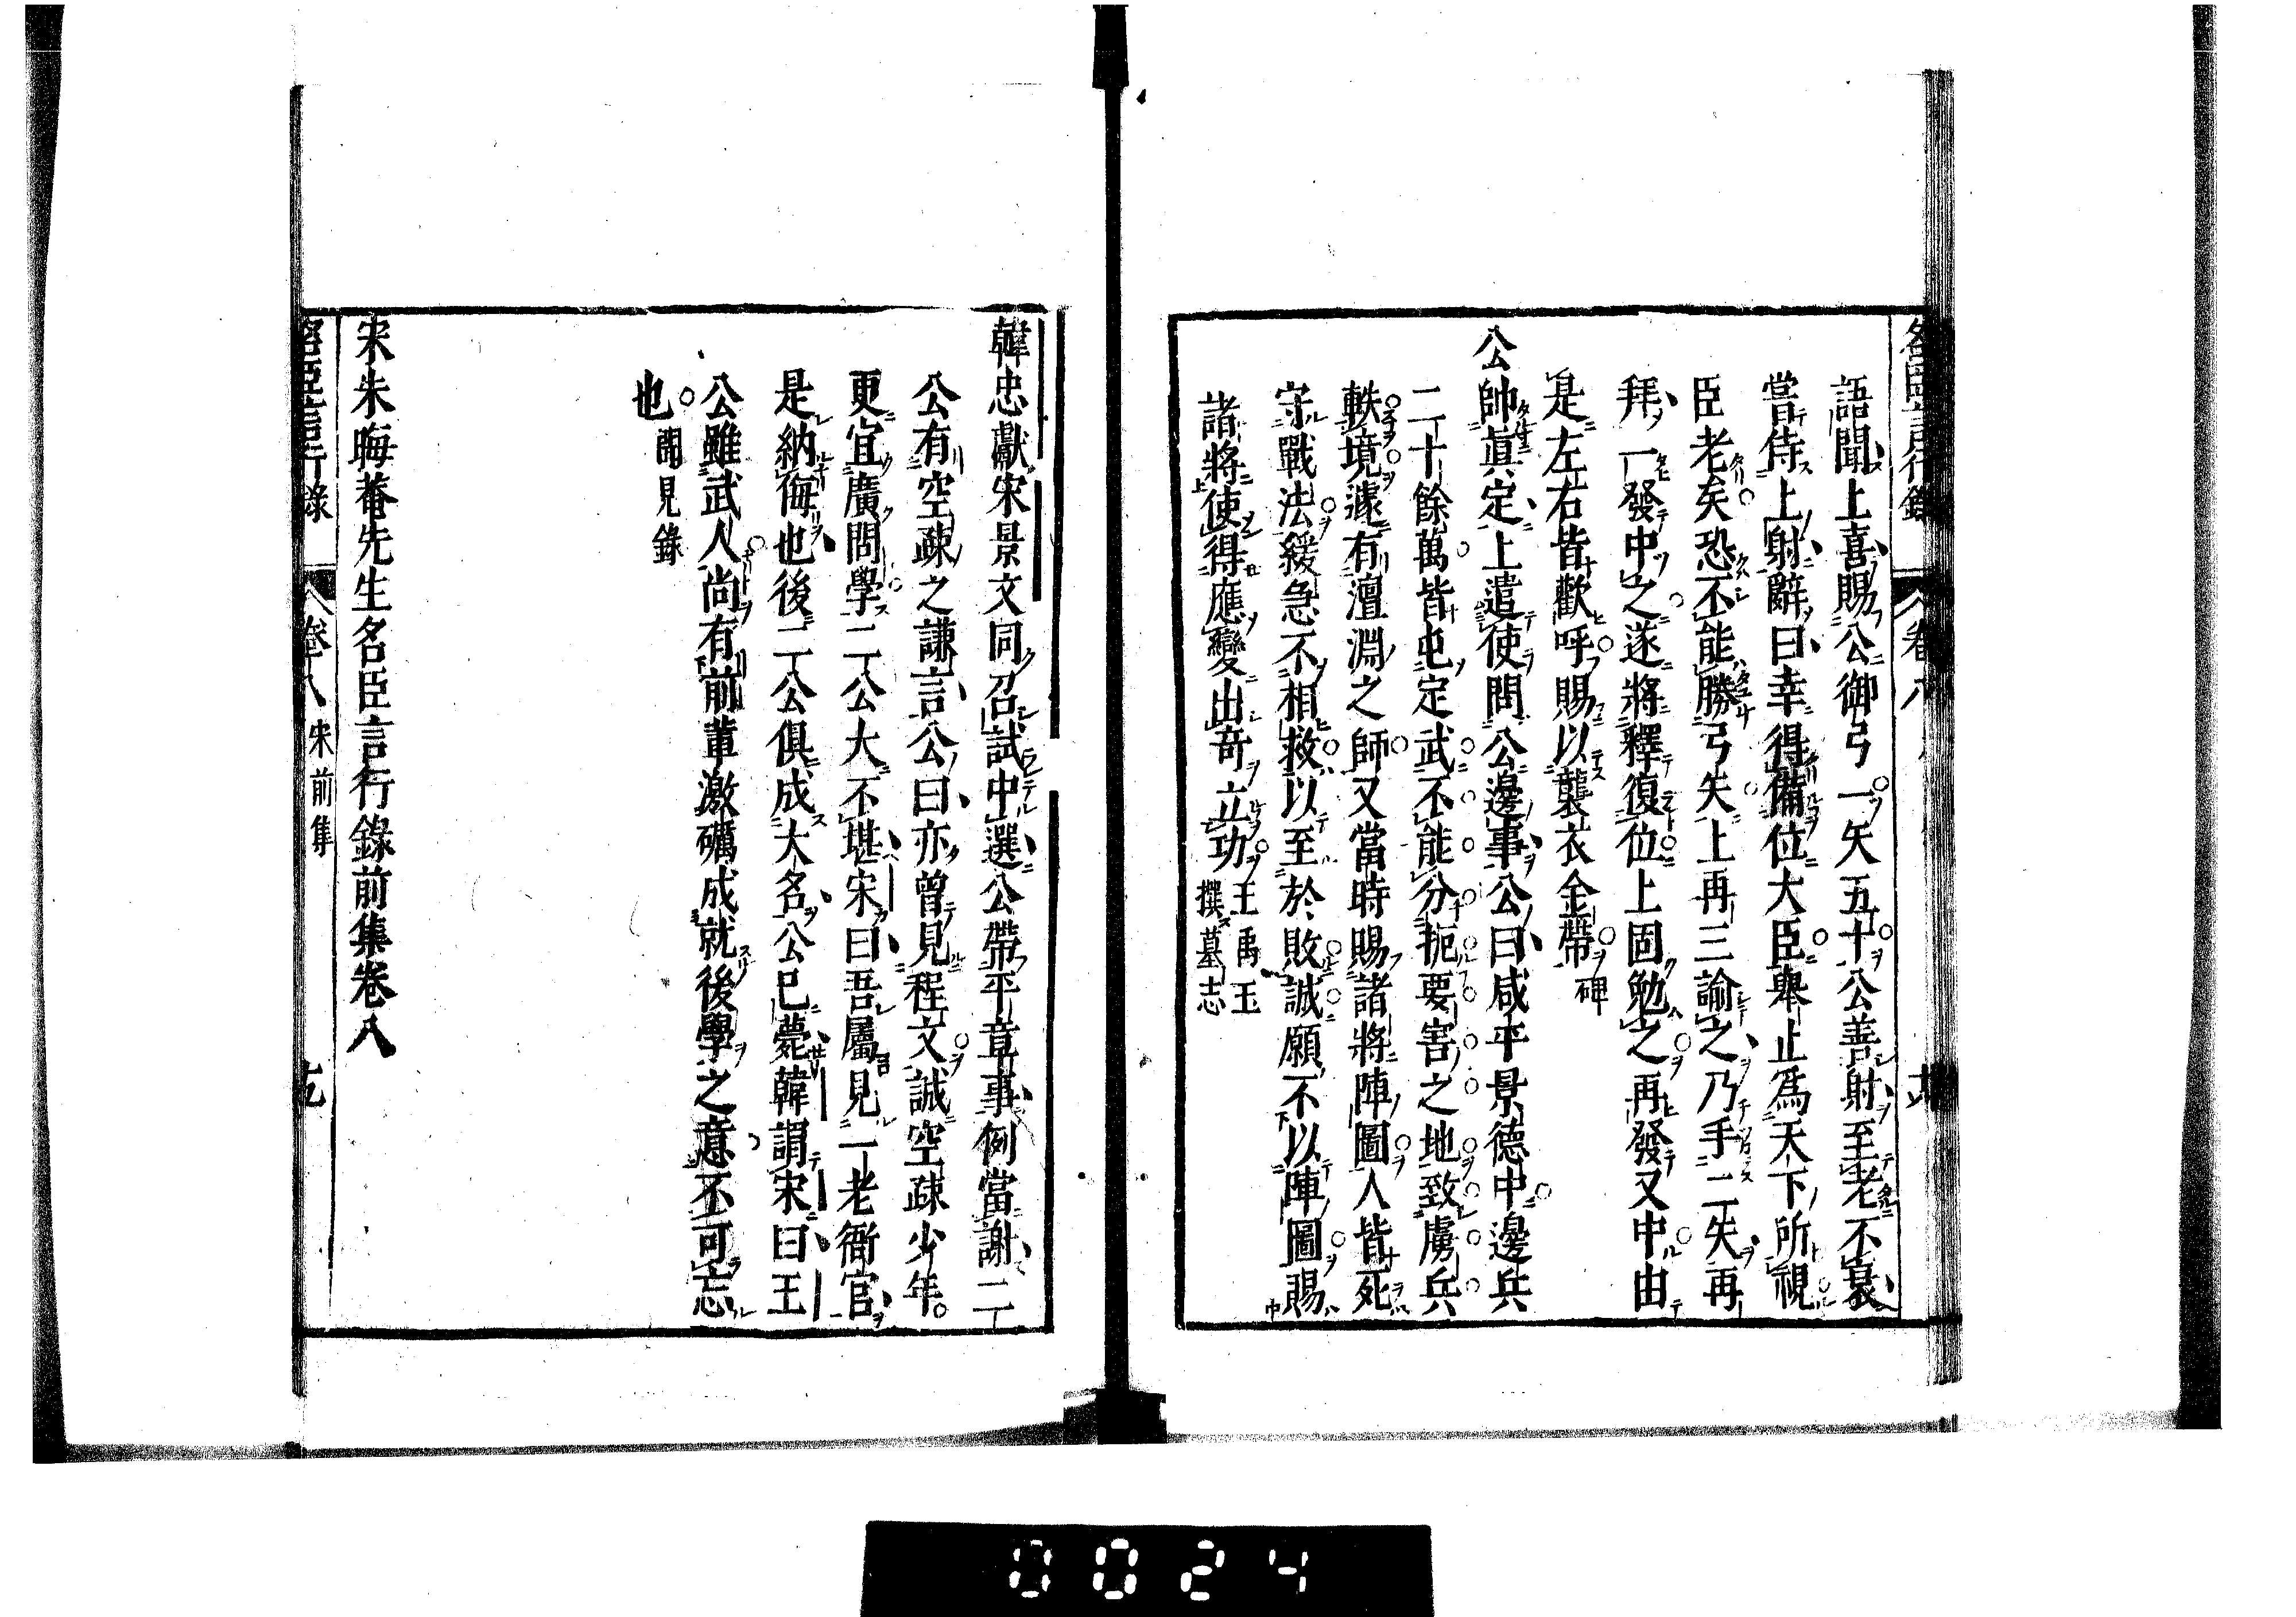 名臣言行錄 卷八
語聞上喜賜公御弓一矢五十公善射至老不衰
嘗侍上射辭曰幸得備位大臣舉止爲天下所視
臣老矣恐不能勝弓矢上再三諭之乃手二矢再
拜一發中之遂將釋復位上固勉之再發又中由
是左右皆歡呼賜以襲衣金帶碑
公帥眞定上遣使問公邊事公曰咸平景德中邊兵
二十餘萬皆屯定武不能分扼要害之地致虜兵
軼境遽有澶淵之師又當時賜諸將陣圖人皆死
守戰法緩急不相救以至於敗誠願不以陣圖賜
諸將使得應變出奇立功王禹玉
撰墓志
韓忠獻宋景文同召試中選公帶平章事例當謝二
公有空疎之謙言公曰亦曾見程文誠空疎少年
更宜廣問學二公大不堪宋曰吾屬見一老衙官
是納侮也後二公俱成大名公已薨韓謂宋曰王
公雖武人尚有前輩激礪成就後學之意不可忘
也聞見錄
宋朱晦菴先生名臣言行錄前集卷八
名臣言行錄 卷八 宋前集
0024